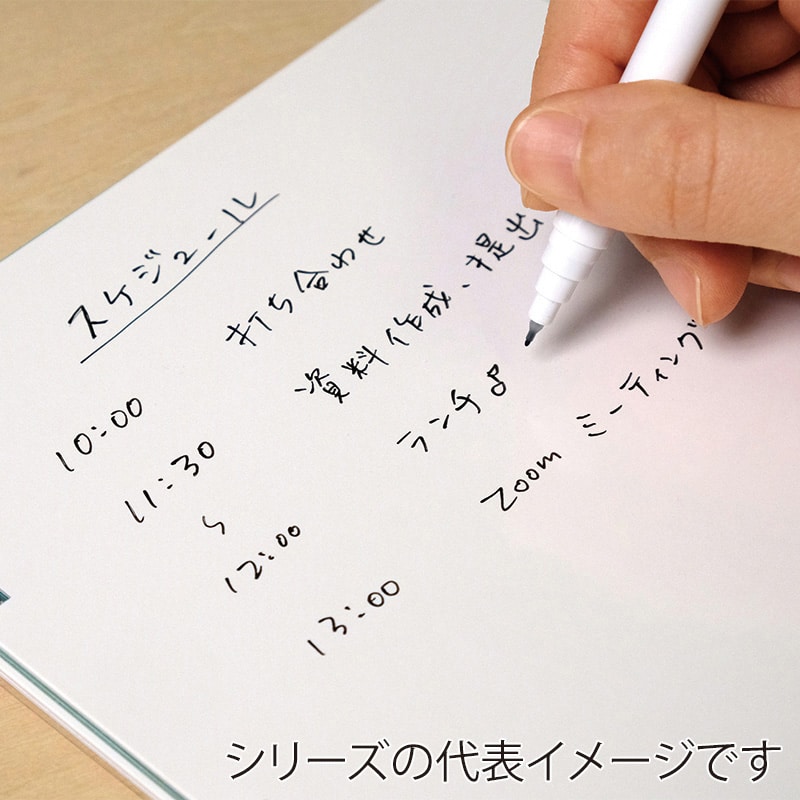 スケジュール
10:00 打ち合わせ
11:30 資料作成、提出
〜
12:00 ランチ♪
13:00 Zoom ミーティング
シリーズの代表イメージです